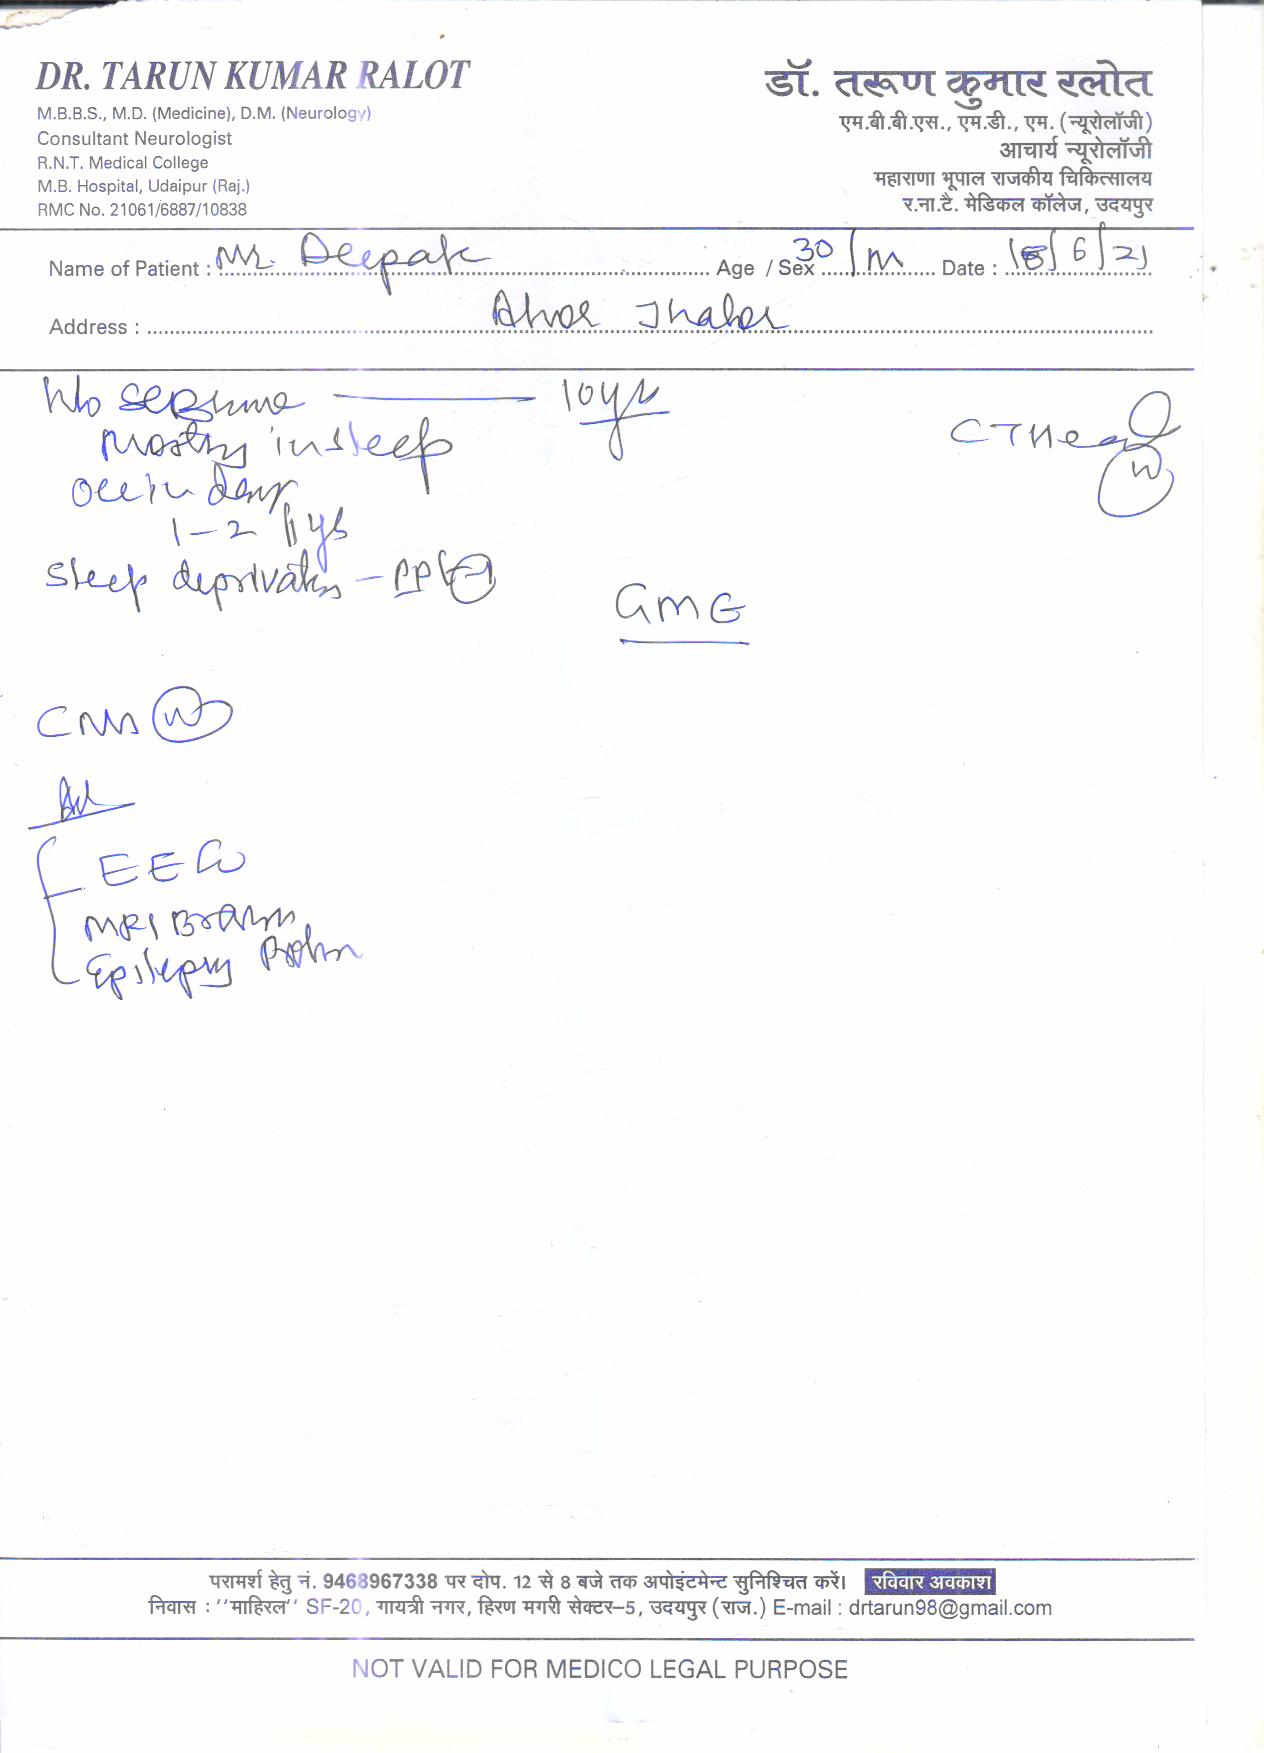 DR. TARUN KUMAR RALOT
M.B.B.S., M.D. (Medicine), D.M. (Neurology)
Consultant Neurologist
R.N.T. Medical College
M.B. Hospital, Udaipur (Raj.)
RMC No. 21061/6887/10838
डॉ. तरूण कुमार रलोत
एम.बी.बी.एस., एम.डी., एम. (न्यूरोलॉजी)
आचार्य न्यूरोलॉजी
महाराणा भूपाल राजकीय चिकित्सालय
र.ना.टै. मेडिकल कॉलेज, उदयपुर
Name of Patient : Mr. Deepak Age / Sex 30/M Date : /6/21
Address :
H/o 10 yr
CT Head N
mostly in sleep
in day
1-2
sleep deprivation
GMG
CNS N
EEG
MRI Brain
Epilepsy
परामर्श हेतु नं. 9468967338 पर दोप. 12 से 8 बजे तक अपोइंटमेन्ट सुनिश्चित करें। रविवार अवकाश
निवास : ''माहिरल'' SF-20, गायत्री नगर, हिरण मगरी सेक्टर–5, उदयपुर (राज.) E-mail : drtarun98@gmail.com
NOT VALID FOR MEDICO LEGAL PURPOSE